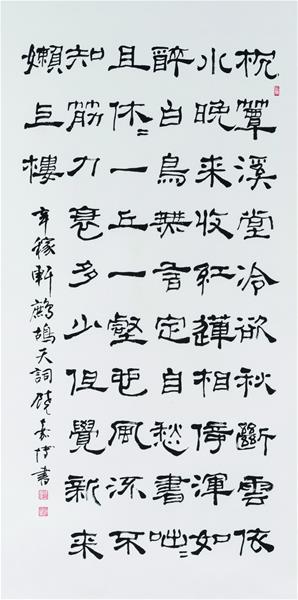 枕簟溪堂冷欲秋斷雲依
水晚来收紅蓮相倚渾如
醉白鳥無言定自愁書咄〻
且休〻一丘一壑也風流不
知筋力衰多少但覺新来
嬾上樓
辛稼軒鷓鴣天詞饒嘉博書